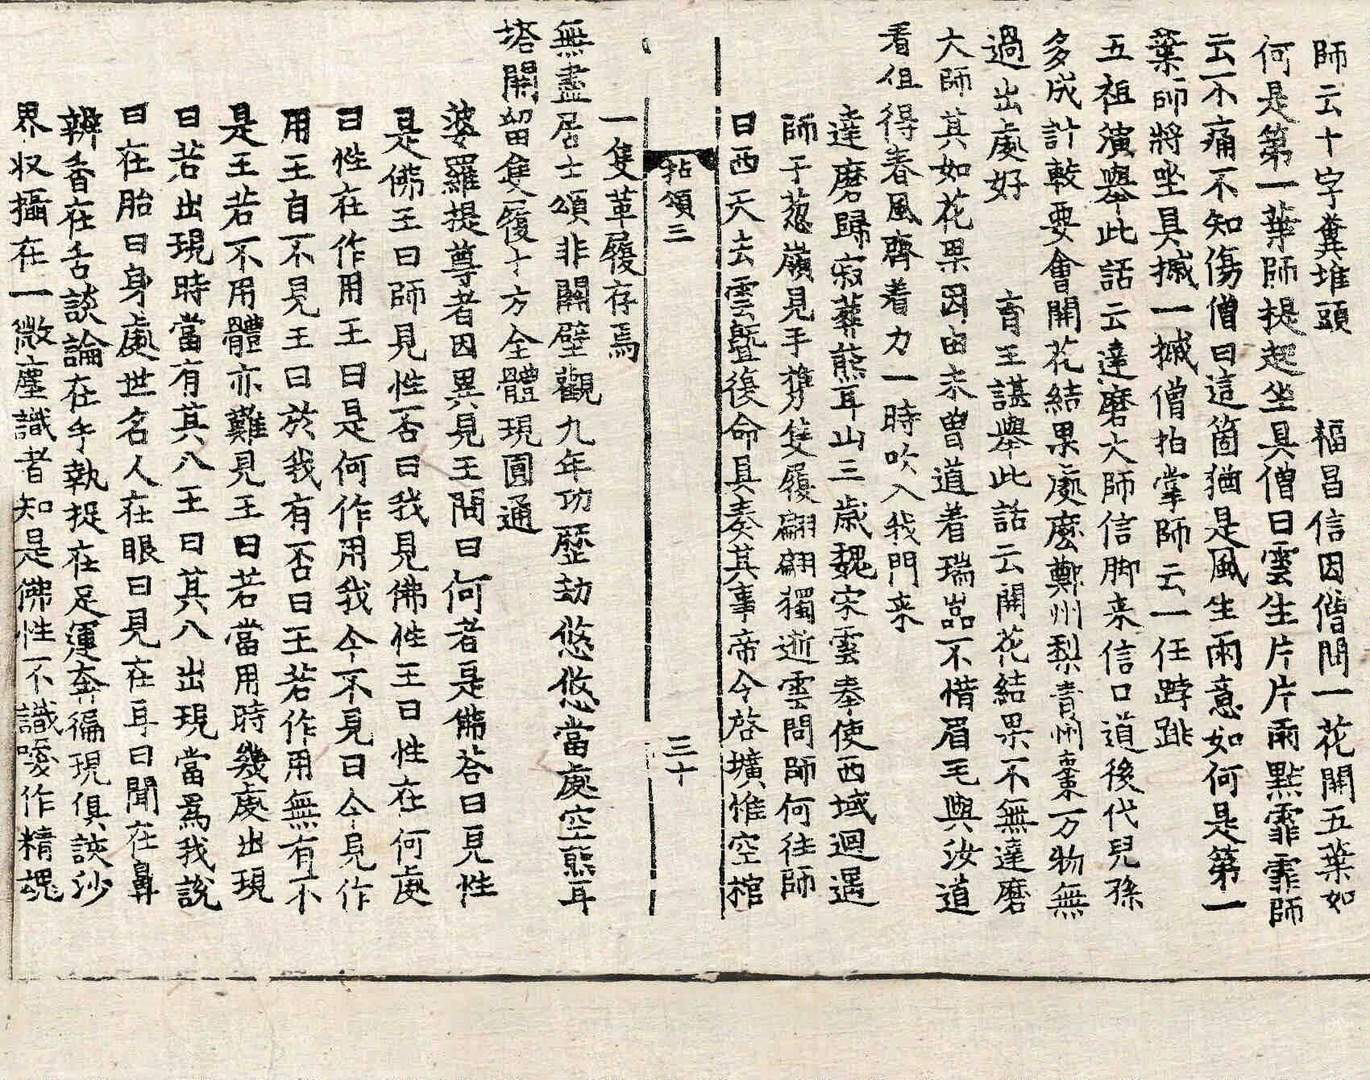 師云十字糞堆頭　福昌信因僧問一花開五葉如
何是第一葉師提起坐具僧曰雲生片片雨點霏霏師
云不痛不知傷僧曰這箇猶是風生雨意如何是第一
葉師將坐具摵一摵僧拍掌師云一任踍跳
五祖演舉此話云達磨大師信脚来信口道後代兒孫
多成計較要會開花結果處麽鄭州梨青州棗万物無
過出處好　育王諶舉此話云開花結果不無達磨
大師其如花果因由未曾道着瑞嵓不惜眉毛與汝道
看但得春風齊着力一時吹入我門来
達磨歸寂葬熊耳山三歲魏宋雲奉使西域迴遇
師于葱嶺見手携隻履翩翩獨逝雲問師何往師
曰西天去雲曁復命具奏其事帝令啓壙惟空棺
拈頌三　三十
一隻革履存焉
無盡居士頌非關壁觀九年功歷劫悠悠當處空熊耳
塔開留隻履十方全體現圓通
婆羅提尊者因異見王問曰何者是佛荅曰見性
是佛王曰師見性否曰我見佛性王曰性在何處
曰性在作用王曰是何作用我今不見曰今見作
用王自不見王曰於我有否曰王若作用無有不
是王若不用體亦難見王曰若當用時幾處出現
曰若出現時當有其八王曰其八出現當爲我說
曰在胎曰身處世名人在眼曰見在耳曰聞在鼻
辨香在舌談論在手執捉在足運奔徧現俱談沙
界収攝在一微塵識者知是佛性不識喚作精魂